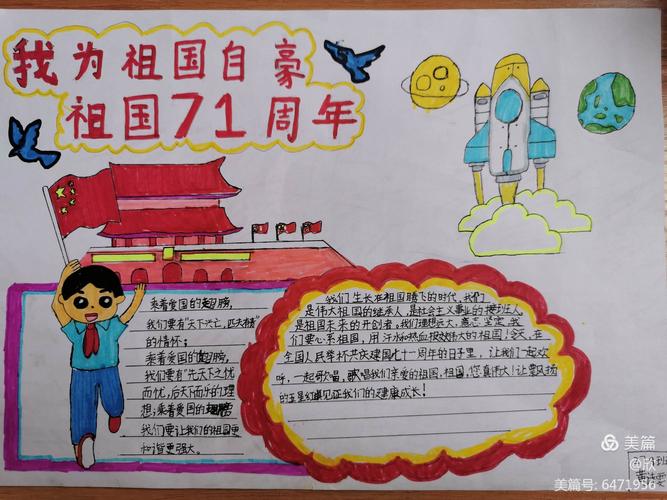 我为祖国自豪
祖国71周年
乘着爱国的翅膀,
我们要有“天下兴亡,匹夫有责”
的情怀;
乘着爱国的翅膀,
我们要有“先天下之忧
而忧,后天下而乐的理
想;乘着爱国的翅膀
我们要让我们的祖国更
和谐更强大。
我们生长在祖国腾飞的时代,我们
是伟大祖国的继承人,是社会主义事业的接班人,
是祖国未来的开创者,我们理想远大,意志坚定,我
们要心系祖国,用汗水和热血报效伟大的祖国!今天,在
全国人民举杯共庆建国七十一周年的日子里,让我们一起欢
呼,一起歌唱,歌唱我们亲爱的祖国,祖国,您真伟大!让飘扬
的五星红旗见证我们的健康成长!
美篇
@欣
美篇号: 6471956